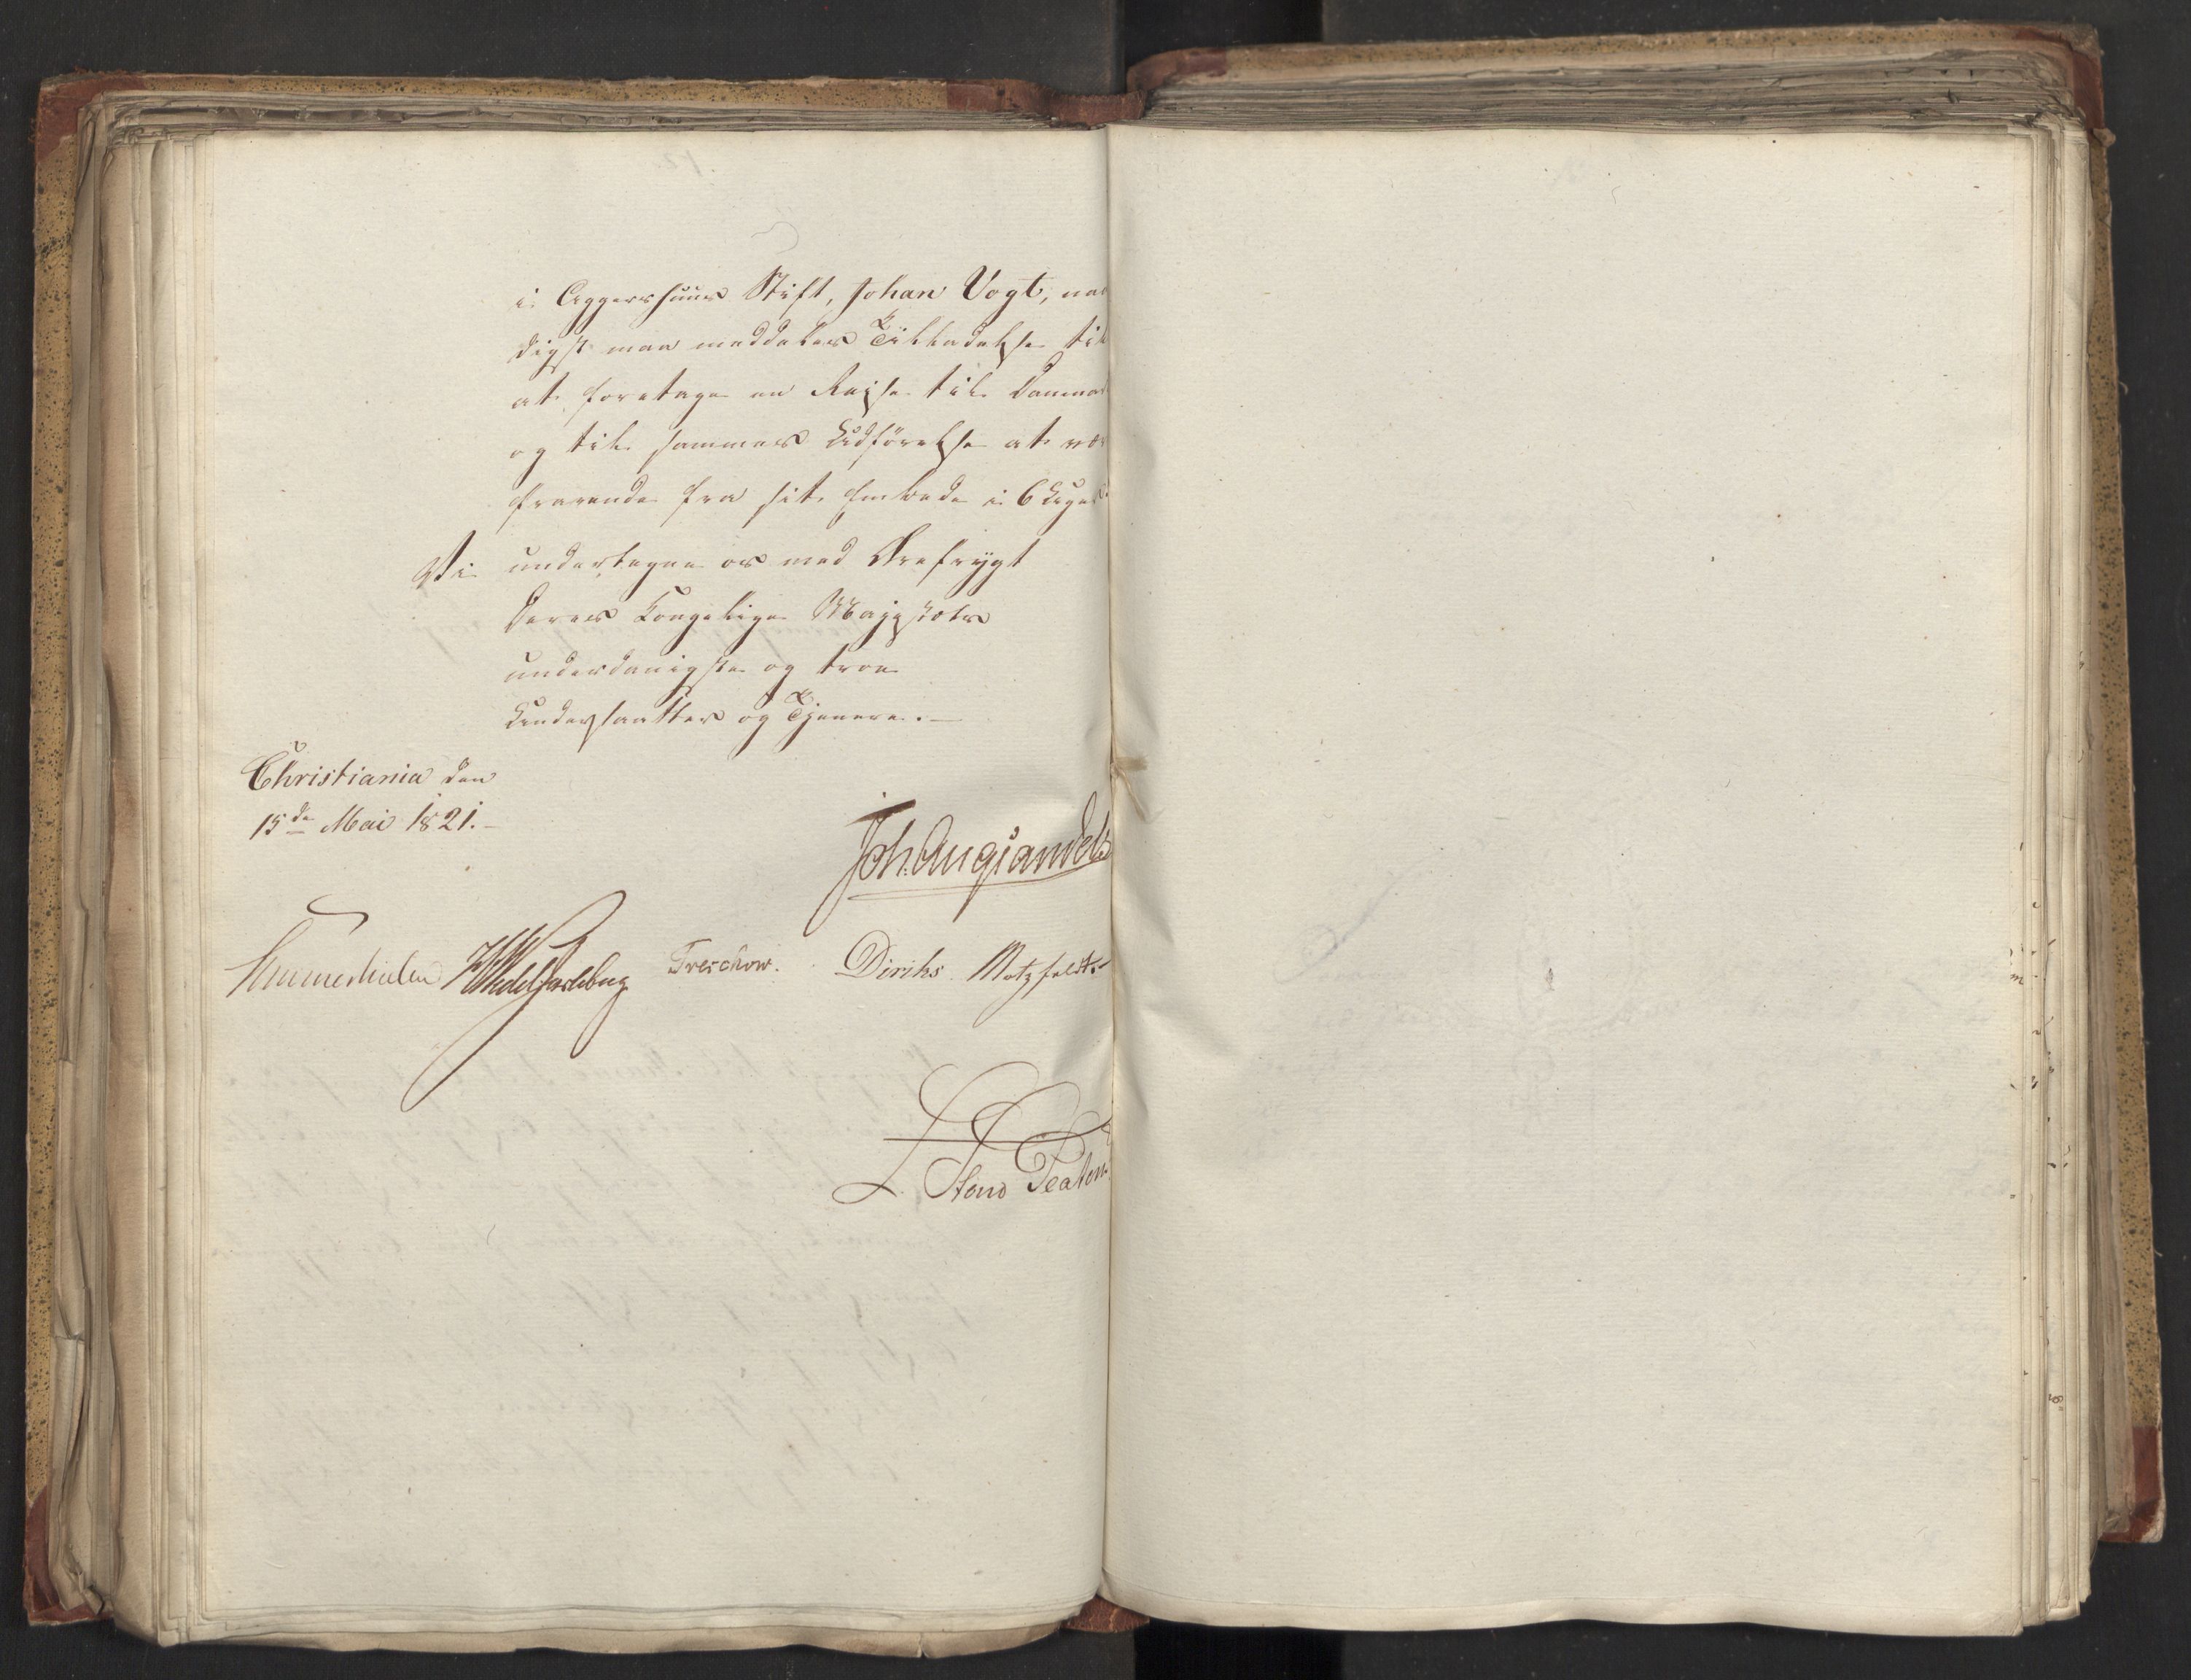 i Aggershuus Stift, Johan Vogt, naa
digst maa meddeles Tilladelse til
at foretage en Rejse til Danma
og til sammes Udførelse at væ
fraværende fra sit Embede i 6 Uger
Vi undertegne os med Ærefrygt
Deres Kongelige Majestæts
underdanigste og troe
Undersaatter og Tjenere.
Christiania den
15de Mai 1821.
Joh. Aug. Sandels
Sommerhielm HWedelJarlsberg Treschow. Diriks Motzfeldt
L